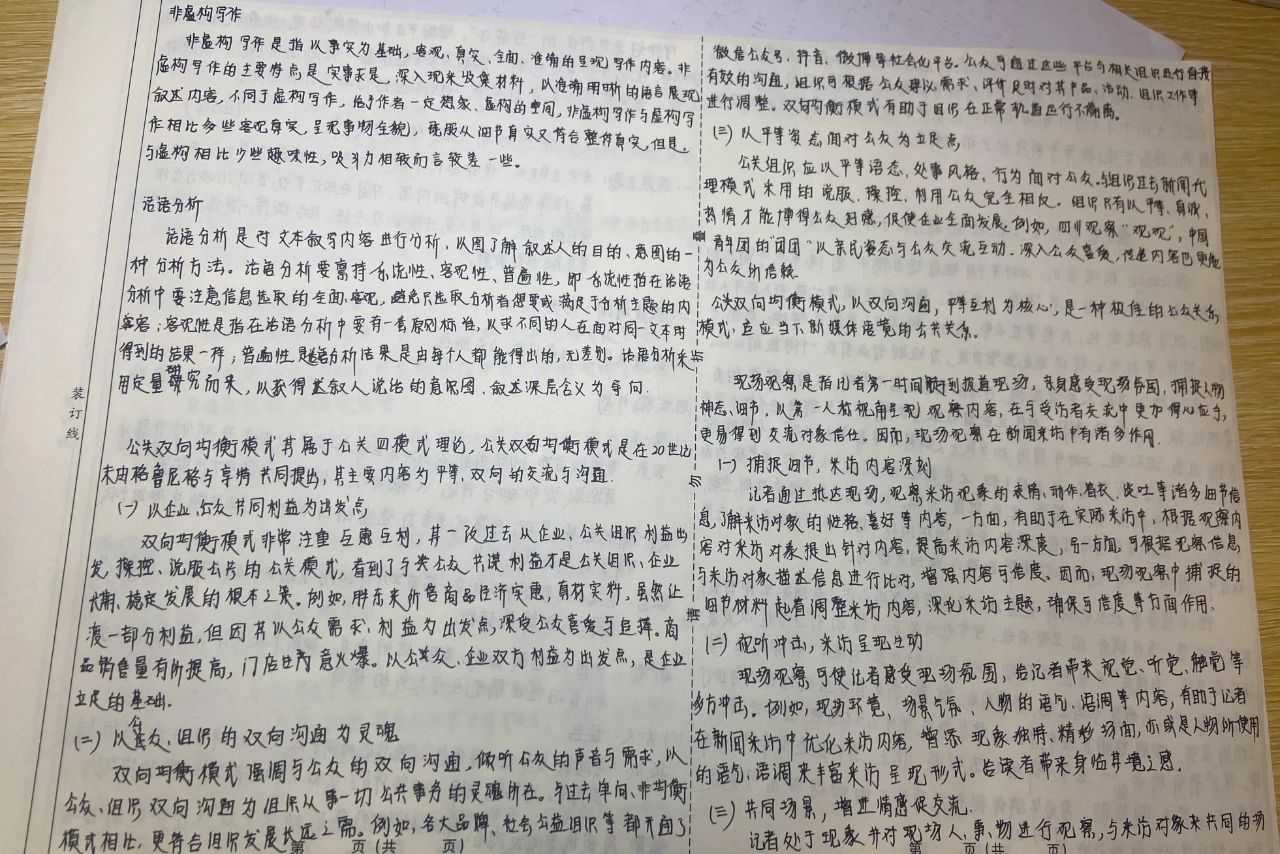 非虚构写作
非虚构写作是指以事实为基础,客观、真实、全面、准确的呈现写作内容。非
虚构写作的主要特点是实事求是,深入现来收集材料,以准确明晰的语言展现
叙述内容,不同于虚构写作,给予作者一定想象、虚构的空间,非虚构写作与虚构写
作相比多些客观真实,呈现事物全貌,既服从细节真实又符合整体真实,但是
与虚构相比少些趣味性,吸引力相较而言较差一些。
话语分析
话语分析是对文本叙写内容进行分析,以图了解叙述人的目的、意图的一
种分析方法。话语分析要秉持系统性、客观性、普遍性,即系统性指在话语
分析中要注意信息选取的全面、客观,避免只选取分析者想要或满足于分析主题的内
容;客观性是指在话语分析中要有一套原则标准,以求不同的人在面对同一文本时
得到的结果一样;普遍性是分析结果是由每个人都能得出的,无差别。话语分析采
用定量研究而来,以获得叙人说话的意图、叙述深层含义为导向.
装订线
公关双向均衡模式其属于公关四模式理论,公关双向均衡模式是在20世纪
末由格鲁尼格与亨特共同提出,其主要内容为平等、双向的交流与沟通.
(一)以企业、公众共同利益为出发点
双向均衡模式非常注重互惠互利,其一改过去从企业、公关组织利益出
发,操控、说服公众的公关模式,看到了与公众共谋利益才是公关组织、企业
长期、稳定发展的根本之策。例如,胖东来价售商品经济实惠,真材实料,虽然让
渡一部分利益,但因其以公众需求、利益为出发点,深受公众喜爱与追捧。商
品销售量有所提高,门店生意火爆。以公众、企业双方利益为出发点,是企业
立足的基础.
(二)以公众、组织的双向沟通为灵魂
双向均衡模式强调与公众的双向沟通,倾听公众的声音与需求,以
公众、组织双向沟通为组织从事一切公共事务的灵魂所在。与过去单向、非均衡
模式相比,更符合组织发展长远之需。例如,各大品牌、社会公益组织等都开通了
第 页(共 页)
微信公众号、抖音、微博等社会化平台。公众可通过这些平台与相关组织进行直接
有效的沟通,组织可根据公众建议、需求、评价及时对其产品、活动、组织工作等
进行调整。双向均衡模式有助于组织在正常轨道运行不偏离.
(三)以平等姿态面对公众为立足点
公关组织应以平等语态,处事风格,行为面对公众,与组织过去新闻代
理模式采用的说服、操控、利用公众完全相反。组织只有以平等、真诚、
热情才能博得公众好感,促使企业全面发展。例如,四川观察"观观",中国
青年团的"团团"以亲民姿态与公众交流互动.深入公众喜爱,传递内容也更能
为公众所信赖.
公关双向均衡模式,以双向沟通,平等互利为核心,是一种极佳的公众关系
模式,适应当下新媒体语境的公共关系.
现场观察是指记者第一时间到报道现场,亲身感受现场氛围,捕捉人物
神态、细节,以第一人称视角呈现观察内容,在与受访者交流中更加得心应手,
更易得到交流对象信任。因而,现场观察在新闻采访中有诸多作用.
(一)捕捉细节,采访内容深刻
记者通过抵达现场,观察采访现象的表情、动作、着衣、谈吐等诸多细节信
息,了解采访对象的性格、喜好等内容,一方面,有助于在实际采访中,根据观察内
容对采访对象提出针对内容,提高采访内容深度,另一方面,可根据观察信息
与采访对象描述信息进行比对,增强内容可信度。因而,现场观察中捕捉的
细节材料起着调整采访内容,深化采访主题,确保可信度等方面作用.
(二)视听冲击,采访呈现生动
现场观察可使记者感受现场氛围,给记者带来视觉、听觉、触觉等
多方冲击。例如,现场环境、场景气氛、人物的语气、语调等内容,有助于记者
在新闻采访中优化采访内容,增添现象独特、精妙场面,亦或是人物所使用
的语气、语调来丰富采访呈现形式。给读者带来身临其境之感.
(三)共同场景,增进情感促交流.
记者处于现象并对现场人、事、物进行观察,与采访对象来共同的场
第 页(共 页)